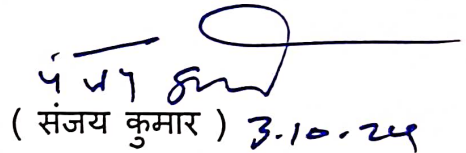 ( संजय कुमार ) 3.10.24